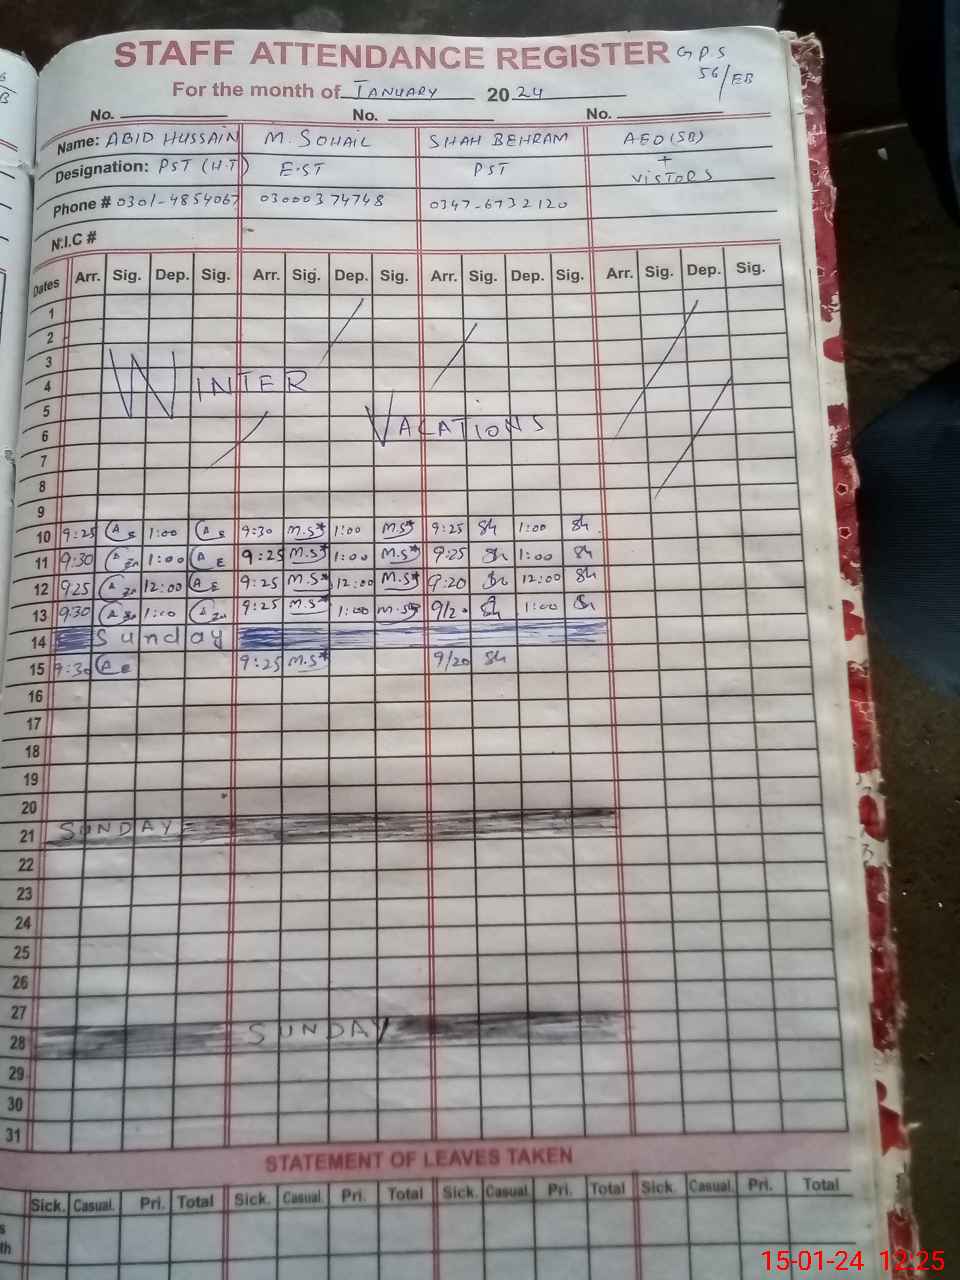 STAFF ATTENDANCE REGISTER GPS
56/EB
For the month of JANUARY 2024
No. No. No.
Name: ABID HUSSAIN M. SOHAIL SHAH BEHRAM AEO (SB)
+
Designation: PST (H.T) E.ST PST VISTORS
Phone # 0301-4854067 03000374748 0347-6732120
N.I.C #
Dates Arr. Sig. Dep. Sig. Arr. Sig. Dep. Sig. Arr. Sig. Dep. Sig. Arr. Sig. Dep. Sig.
1
2
3
4 WINTER
5
6 VACATIONS
7
8
9
10 9:25 1:00 9:30 M.S 1:00 M.S 9:25 Sh 1:00 Sh
11 9:30 1:00 9:25 M.S 1:00 M.S 9:25 Sh 1:00 Sh
12 9:25 12:00 9:25 M.S 12:00 M.S 9:20 Sh 12:00 Sh
13 9:30 1:00 9:25 M.S 1:00 M.S 9/20 Sh 1:00 Sh
14 Sunday
15 9:30 9:25 M.S 9/20 Sh
16
17
18
19
20
21 SUNDAY
22
23
24
25
26
27
28 SUNDAY
29
30
31
STATEMENT OF LEAVES TAKEN
Sick. Casual. Pri. Total Sick. Casual. Pri. Total Sick. Casual. Pri. Total Sick. Casual. Pri. Total
15-01-24 12:25